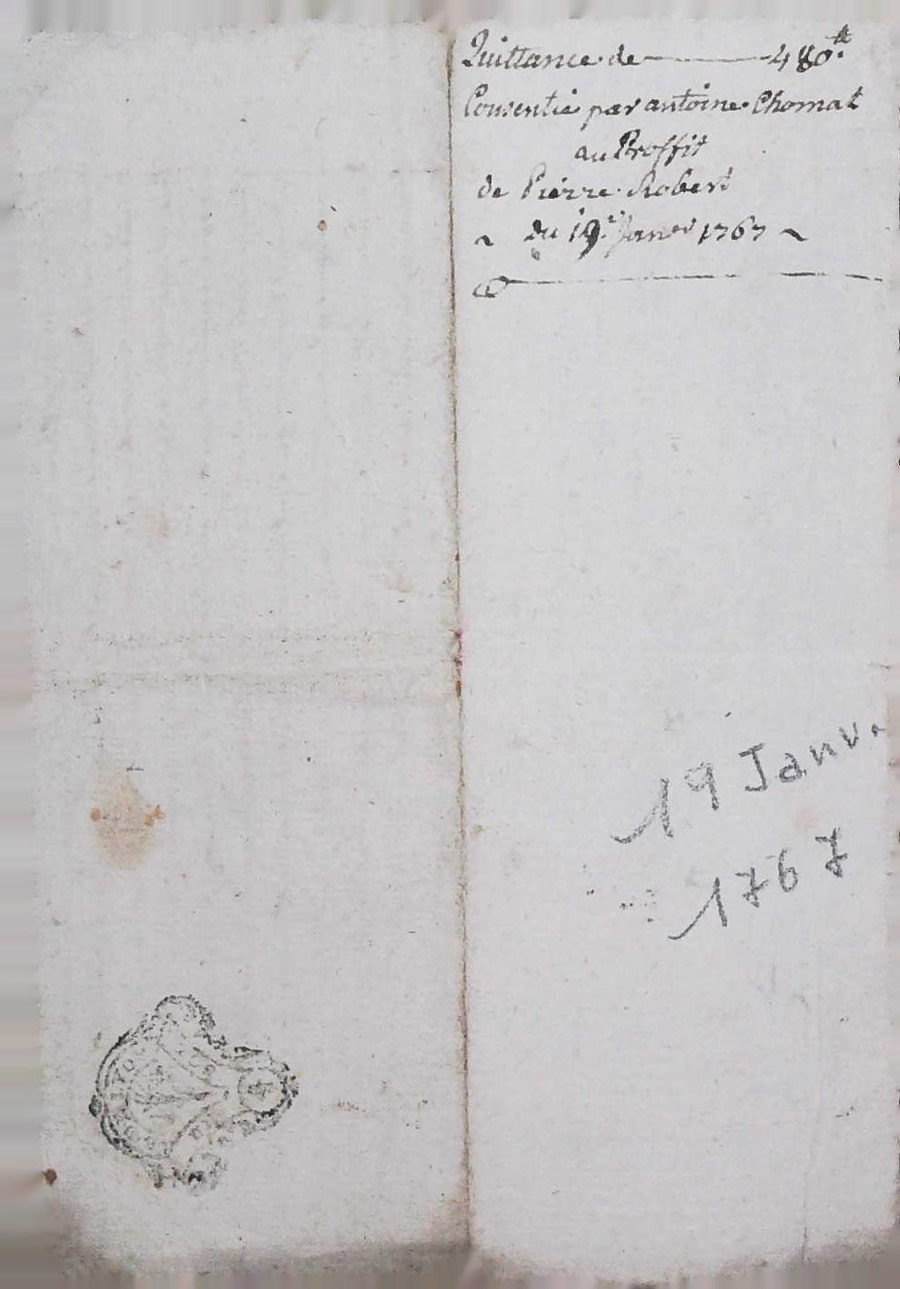 Quittance de 480.₶
Consentie par antoine Chomat
au Proffit
de Pierre Robert
~ du 19.e Janer 1767 ~
19 Janv.
1767